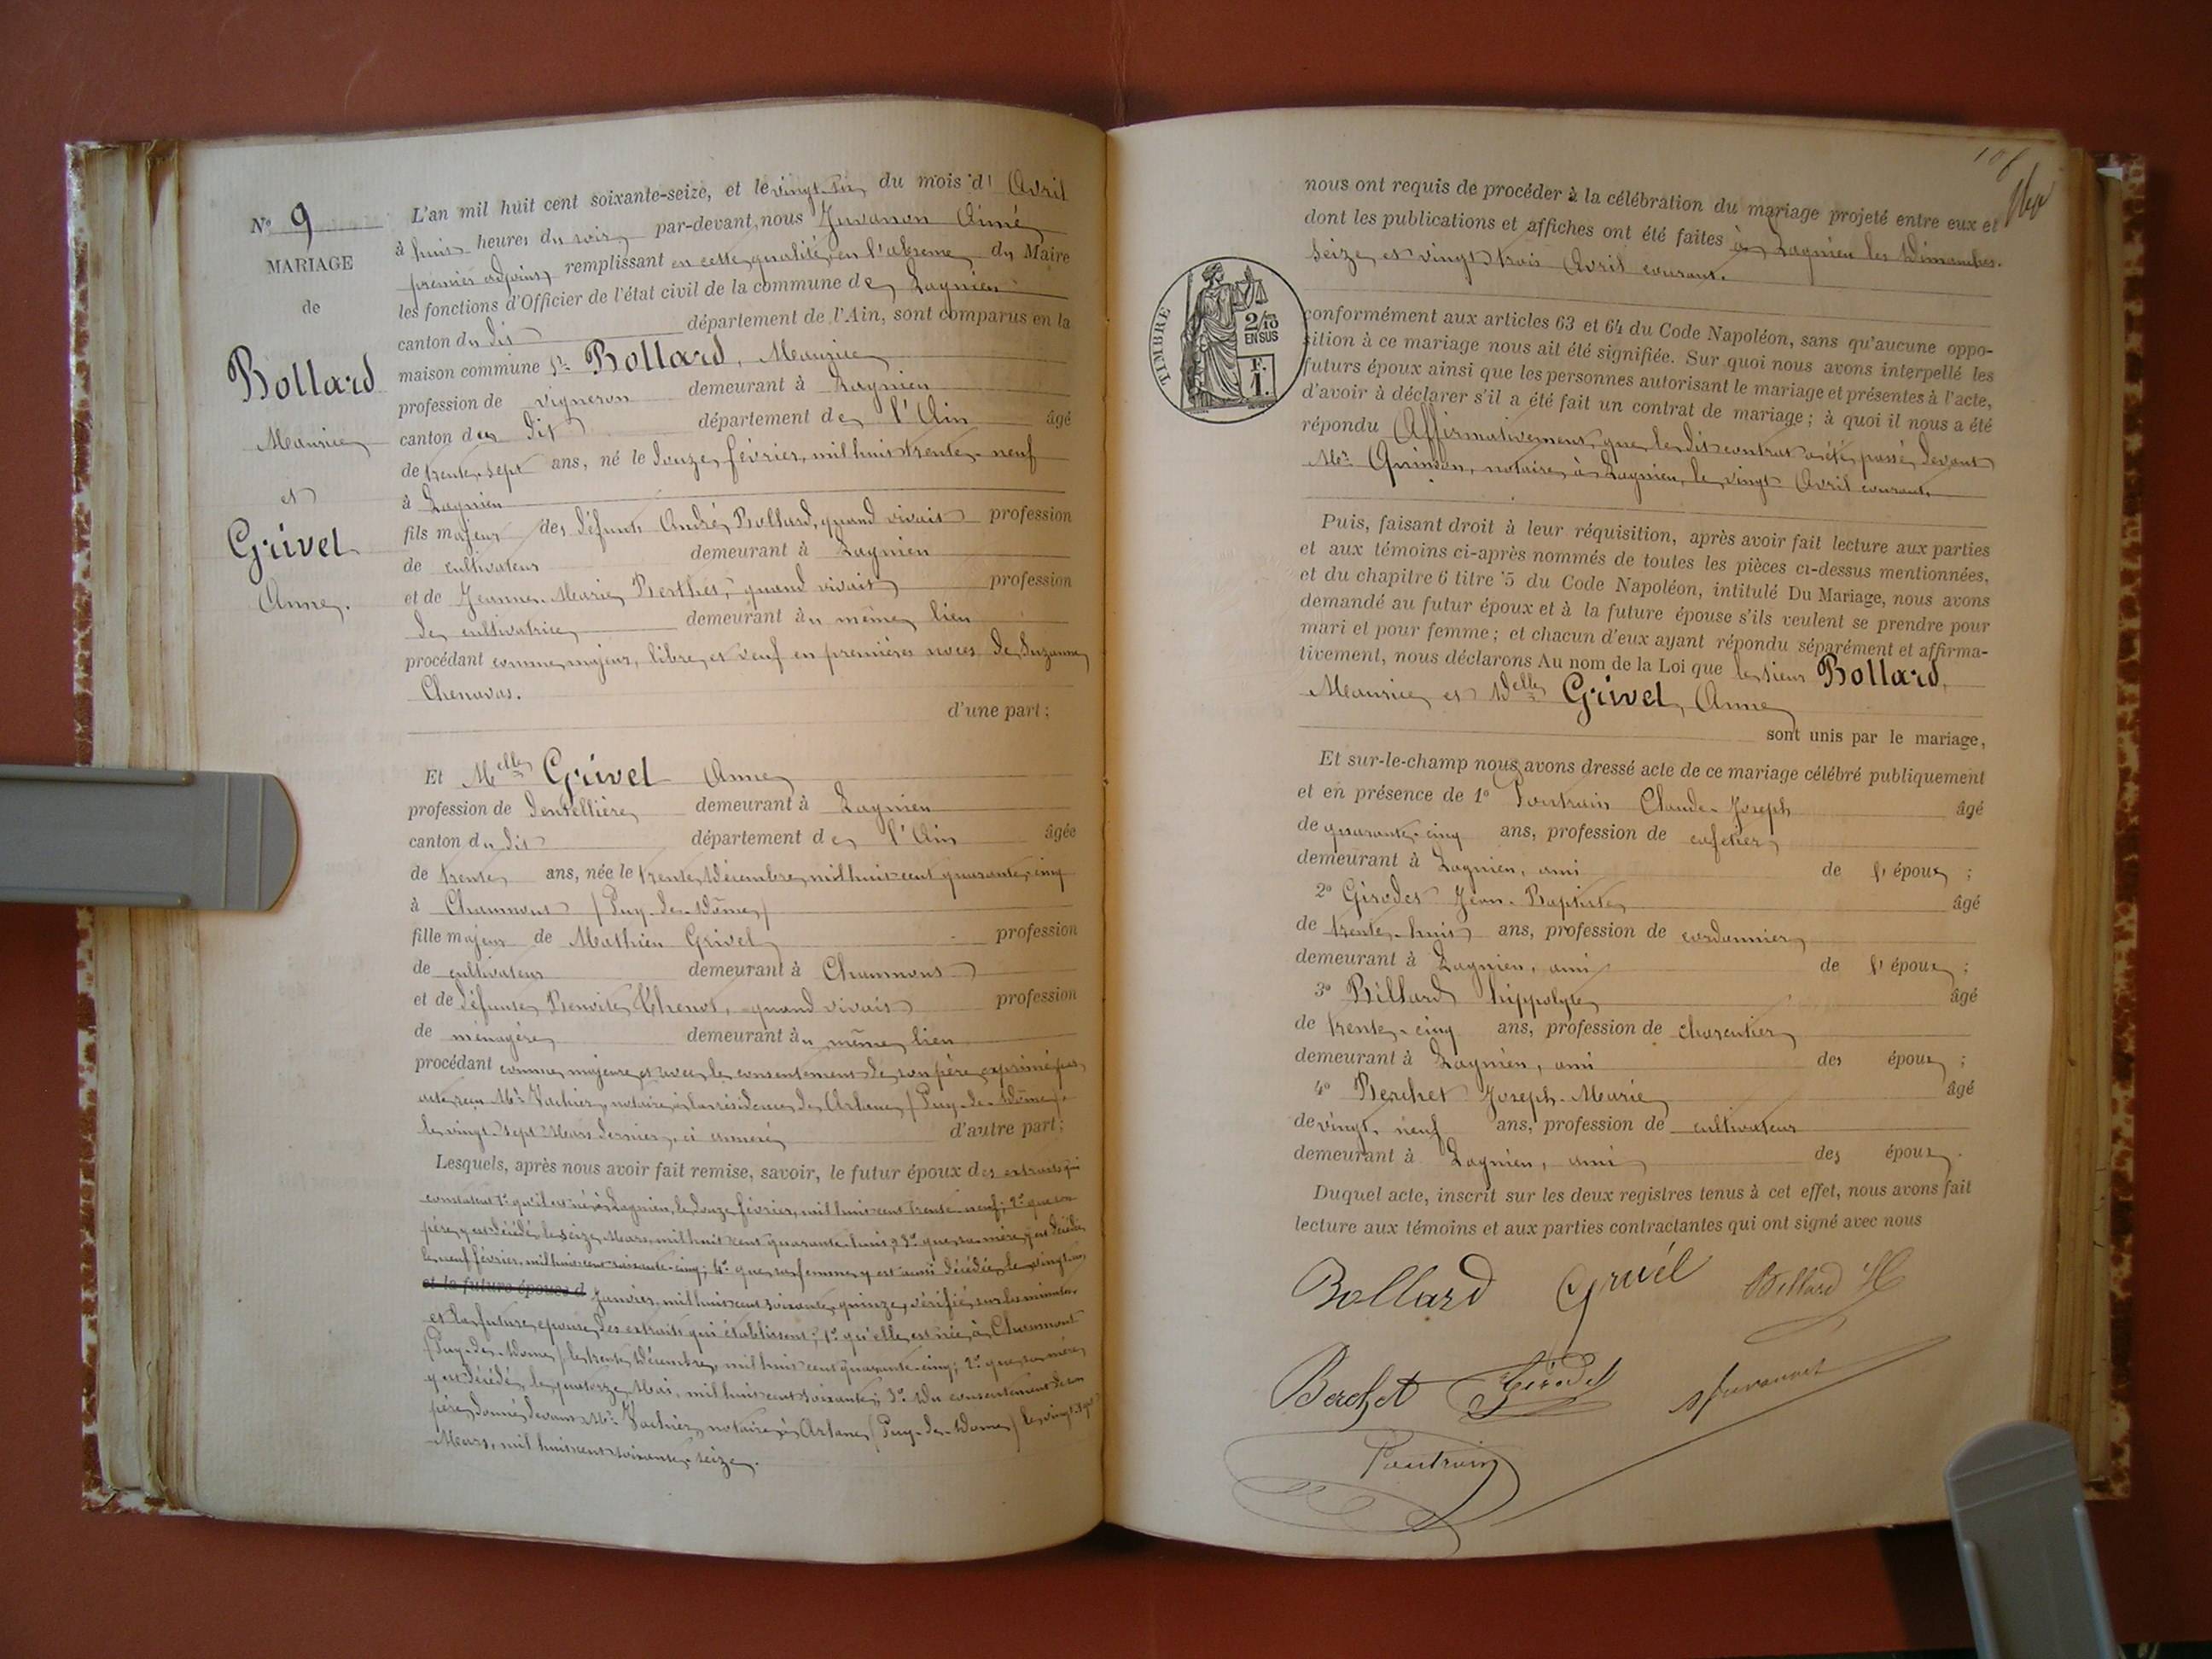 N° 9
MARIAGE
de
Bollard
Maurice
et
Grivel
Anne.
L'an mil huit cent soixante-seize, et le vingt-six du mois d' Avril
à huit heures du soir par-devant nous Juvanon Aimé
premier adjoint remplissant en cette qualité en l'absence du Maire
les fonctions d'Officier de l'état civil de la commune de Lagnieu
canton du dit département de l'Ain, sont comparus en la
maison commune Sr Bollard, Maurice
profession de vigneron demeurant à Lagnieu
canton du dit département de l'Ain âgé
de trente-sept ans, né le douze février, mil huit trente-neuf
à Lagnieu
fils majeur des défunts André Bollard, quand vivait profession
de cultivateur demeurant à Lagnieu
et de Jeanne-Marie Berthet, quand vivait profession
de cultivatrice demeurant au même lieu
procédant comme majeur, libre, et veuf en premières noces de Suzanne
Chenavas.
d'une part;
Et Melle Grivel Anne
profession de dentellière demeurant à Lagnieu
canton du dit département de l'Ain âgée
de trente ans, née le trente Décembre, mil huit cent quarante-cinq
à Chaumont (Puy-de-Dôme)
fille majeur de Mathieu Grivel profession
de cultivateur demeurant à Chaumont
et de défunte Benoite quand vivait profession
de ménagère demeurant au même lieu
procédant comme majeure et avec le consentement de son père exprimé par
acte reçu Me Vachier, notaire à la résidence de Arlanc (Puy-de-Dôme)
le vingt-sept Mars dernier, ci annexé d'autre part;
Lesquels, après nous avoir fait remise, savoir, le futur époux des extraits qui
constatent 1° qu'il est né à Lagnieu, le douze février, mil huit cent trente-neuf; 2° que son
père y est décédé, le seize Mars, mil huit cent quarante-huit; 3° que sa mère y est décédée
le neuf février, mil huit cent soixante-cinq; 4° que sa femme y est aussi décédée, le vingt-
et la future épouse d Janvier, mil huit cent soixante-quinze, vérifié sur les minutes
et la future épouse des extraits qui établissent; 1° qu'elle est née, à Chaumont
(Puy-de-Dôme) le trente Décembre, mil huit cent quarante-cinq; 2° que sa mère
y est décédée, le quatorze Mai, mil huit cent soixante; 3° Du consentement de son
père, donné devant Me Vachier, notaire à Arlanc (Puy-de-Dôme) le vingt-sept
Mars, mil huit cent soixante-seize.
nous ont requis de procéder à la célébration du mariage projeté entre eux et
dont les publications et affiches ont été faites à Lagnieu les Dimanches
seize et vingt-trois Avril courant.
TIMBRE
2/10
EN SUS
F.
1.
conformément aux articles 63 et 64 du Code Napoléon, sans qu'aucune oppo-
sition à ce mariage nous ait été signifiée. Sur quoi nous avons interpellé les
futurs époux ainsi que les personnes autorisant le mariage et présentes à l'acte,
d'avoir à déclarer s'il a été fait un contrat de mariage; à quoi il nous a été
répondu Affirmativement, que le dit contrat a été passé devant
Me Quinson, notaire, à Lagnieu, le vingt Avril courant.
Puis, faisant droit à leur réquisition, après avoir fait lecture aux parties
et aux témoins ci-après nommés de toutes les pièces ci-dessus mentionnées,
et du chapitre 6 titre 5 du Code Napoléon, intitulé Du Mariage, nous avons
demandé au futur époux et à la future épouse s'ils veulent se prendre pour
mari et pour femme; et chacun d'eux ayant répondu séparément et affirma-
tivement, nous déclarons Au nom de la Loi que le sieur Bollard,
Maurice et Delle Grivel, Anne
sont unis par le mariage,
Et sur-le-champ nous avons dressé acte de ce mariage célébré publiquement
et en présence de 1° Poutrain Claude-Joseph âgé
de quarante-cinq ans, profession de cafetier
demeurant à Lagnieu, ami de l'époux;
2° Girodet Jean-Baptiste âgé
de trente-huit ans, profession de cordonnier
demeurant à Lagnieu, ami de l'époux;
3° Billard hippolyte âgé
de trente-cinq ans, profession de charcutier
demeurant à Lagnieu, ami des époux;
4° Berchet Joseph-Marie âgé
de vingt-neuf ans, profession de cultivateur
demeurant à Lagnieu, ami des époux.
Duquel acte, inscrit sur les deux registres tenus à cet effet, nous avons fait
lecture aux témoins et aux parties contractantes qui ont signé avec nous
Bollard Grivél Billard H
Berchet Girodet Juvanon
Poutrain